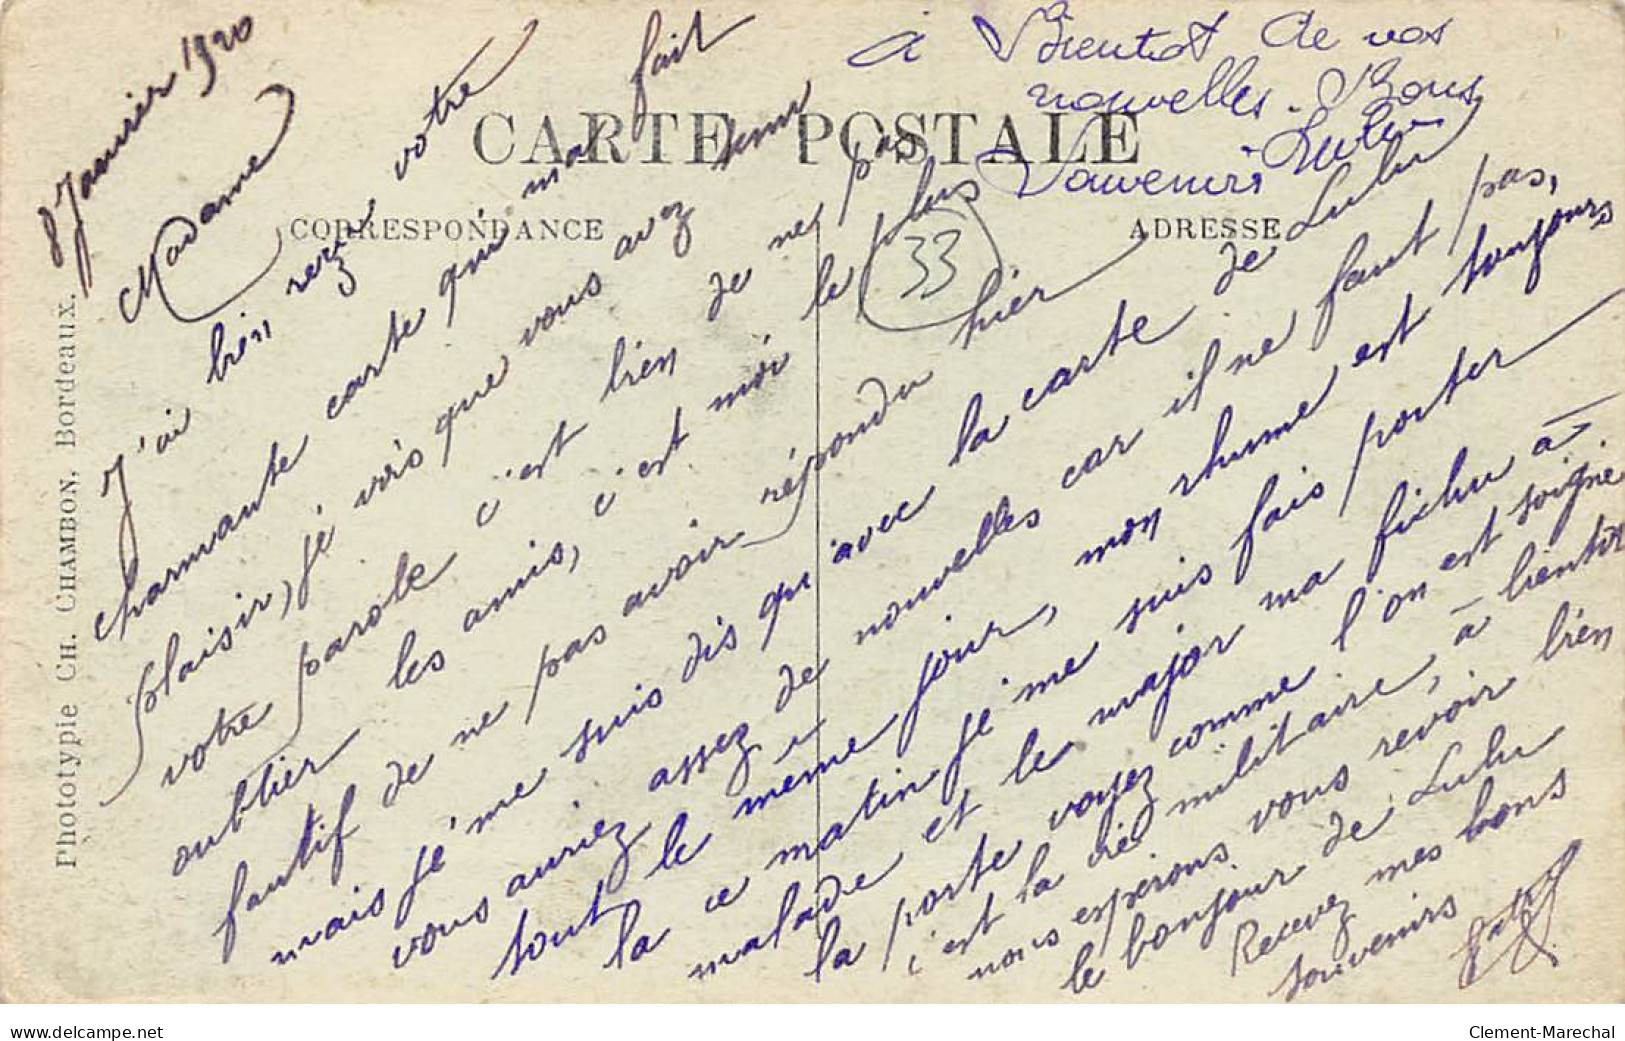 8 Janvier 1920
Madame
J'ai bien reçu votre
charmante carte qui ma fait
plaisir, je vois que vous avez tenu
votre parole c'est bien de ne pas
oublier les amis, c'est moi le plus
fautif de ne pas avoir répondu hier
mais je me suis dis qu'avec la carte de Lulu
vous auriez assez de nouvelles car il ne faut pas,
tout le meme jour, mon rhume est toujours
la ce matin je me suis fais porter
malade et le major ma fichu à
la porte voyez comme l'on est soigné.
c'est la vie militaire, à bientôt
nous esperons vous revoir bien
le bonjour de Lulu
Recevez mes bons
souvenirs
à Bientot de vos
nouvelles. Bons
Souvenirs Lulu
CARTE POSTALE
CORRESPONDANCE
ADRESSE
33
Phototypie CH. CHAMBON, Bordeaux.
www.delcampe.net
Clement-Marechal